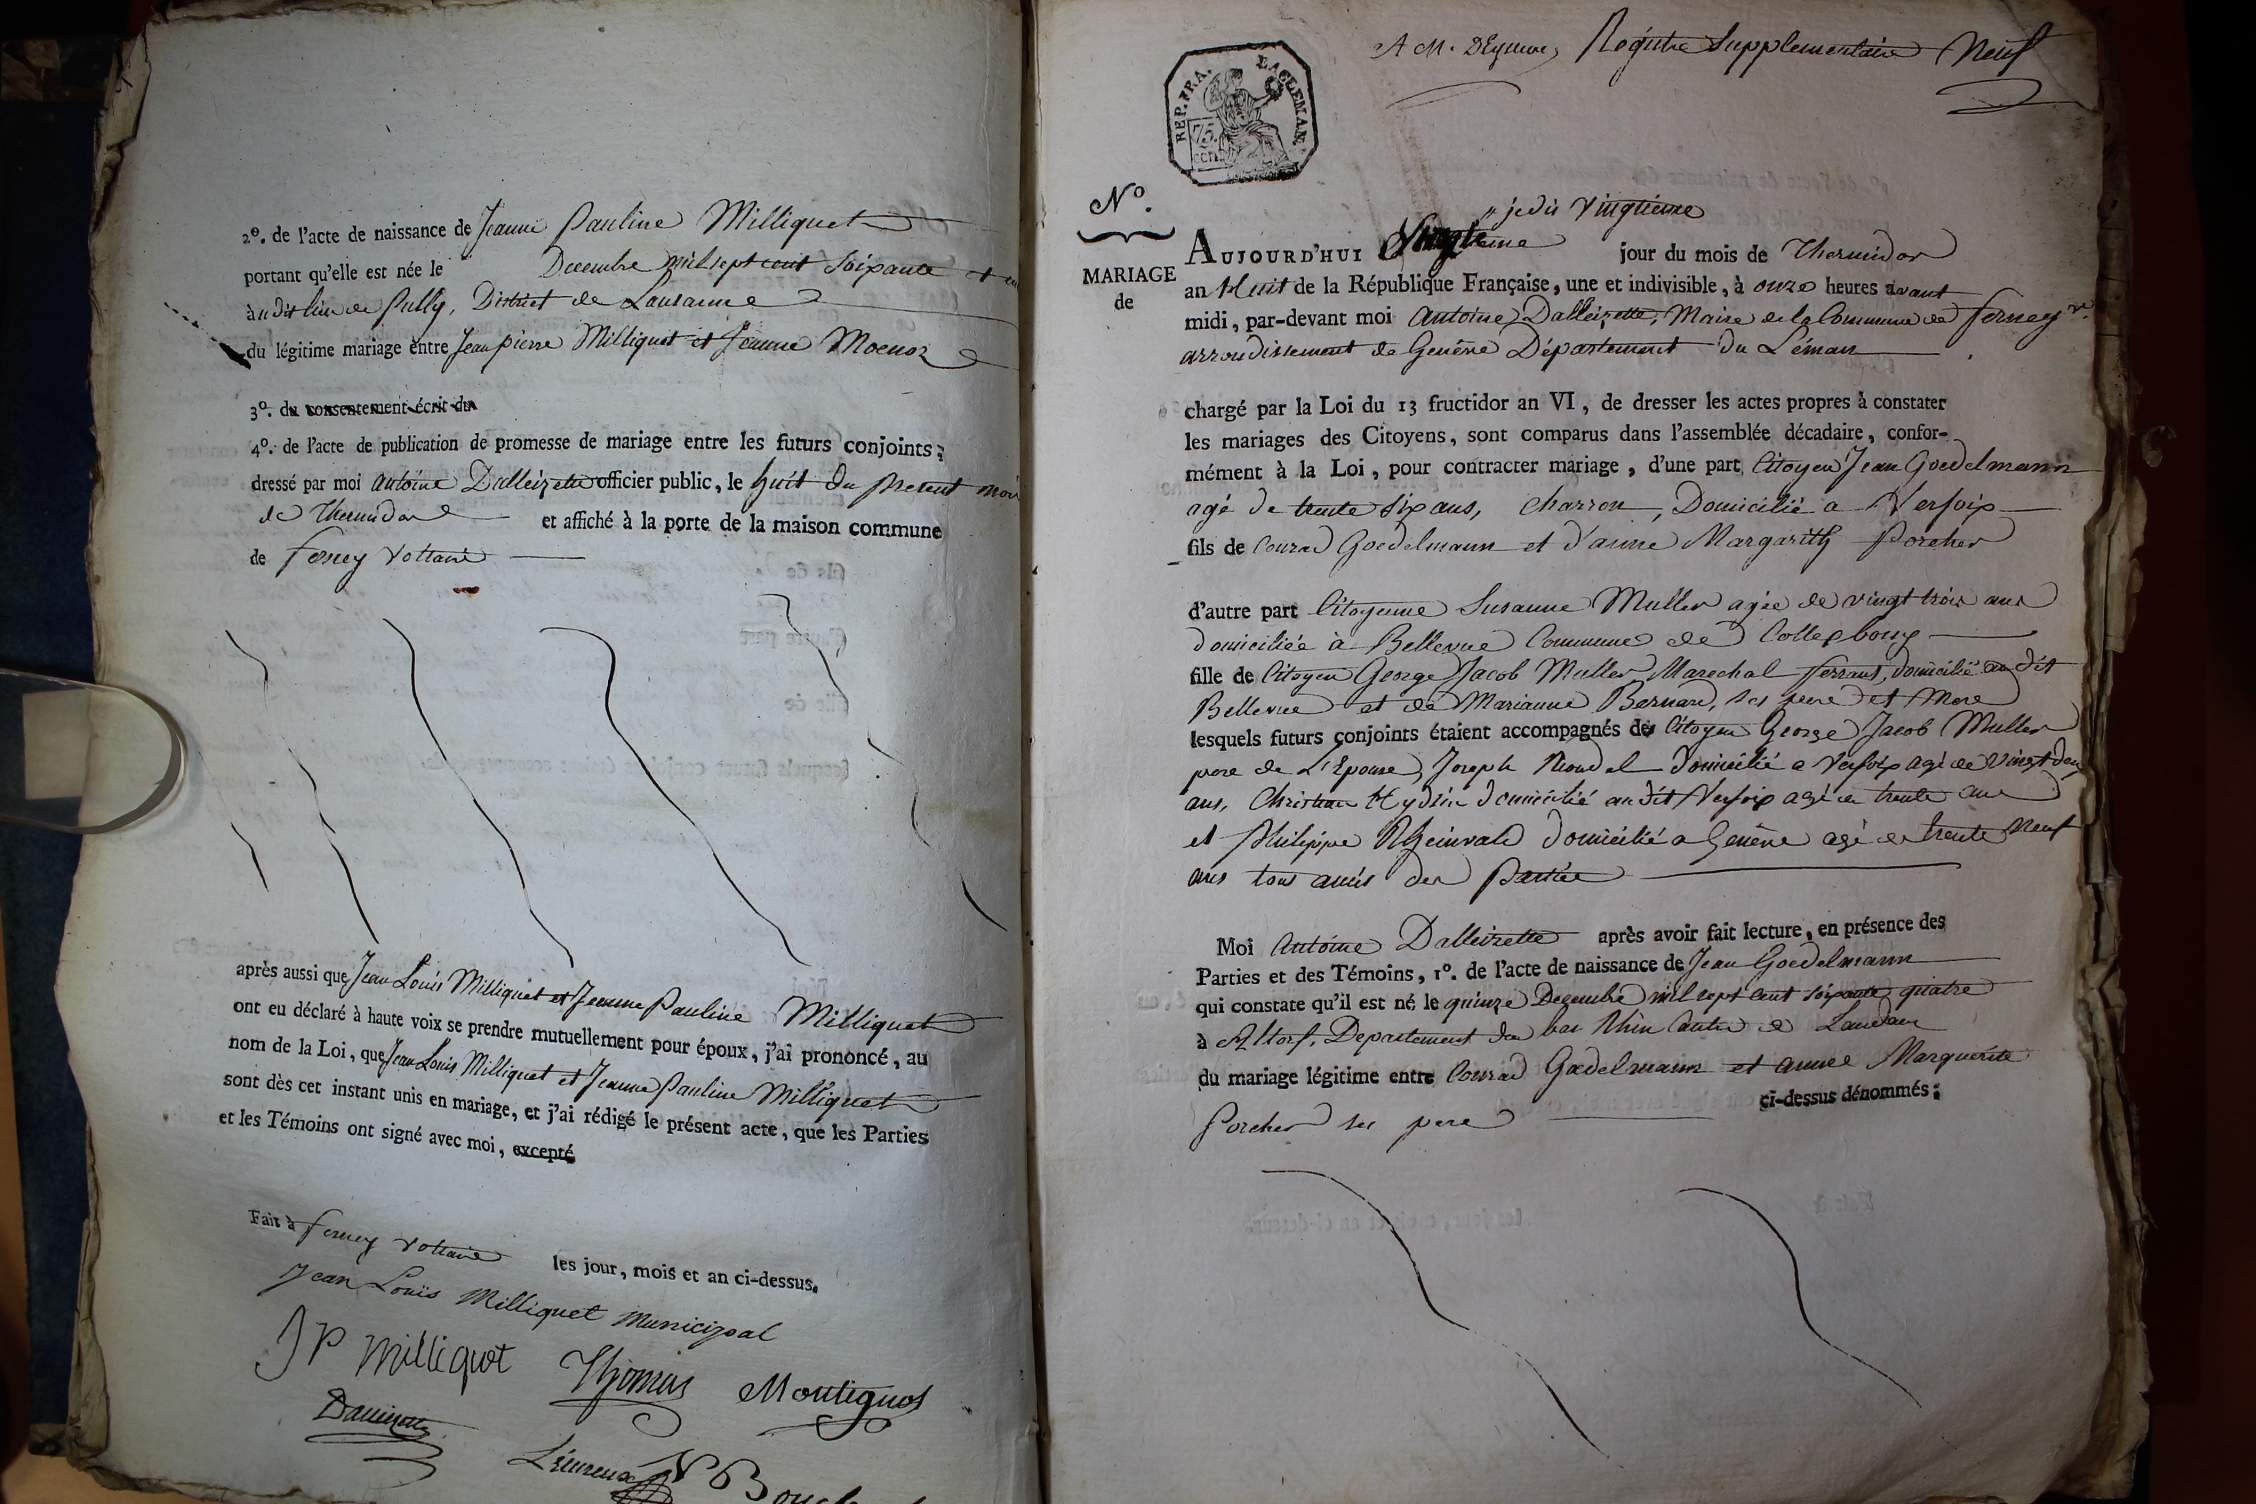 2º. de l'acte de naissance de Jeanne Pauline Milliquet
portant qu'elle est née le Decembre mil sept cent soixante et
au dit lieu de Pully, District de Lausanne
du légitime mariage entre Jean pierre Milliquet et Jeanne
3º. du consentement écrit du
4º. de l'acte de publication de promesse de mariage entre les futurs conjoints,
dressé par moi antoine Dalleizette officier public, le huit du présent mois
de Thermidor et affiché à la porte de la maison commune
de ferney Voltaire
après aussi que Jean Louis Milliquet et Jeanne Pauline Milliquet
ont eu déclaré à haute voix se prendre mutuellement pour époux, j'ai prononcé, au
nom de la Loi, que Jean Louis Milliquet et Jeanne Pauline Milliquet
sont dès cet instant unis en mariage, et j'ai rédigé le présent acte, que les Parties
et les Témoins ont signé avec moi, excepté
Fait à ferney voltaire les jour, mois et an ci-dessus.
Jean Louis Milliquet municipal
J P Milliquet Thomas Montignos
Dalleizette
N B
A M. Registre Supplementaire Neuf
REP. FRA.
75.
CEN.
Nº.
MARIAGE
de
jedis vingtieme
AUJOURD'HUI jour du mois de Thermidor
an Huit de la République Française, une et indivisible, à onze heures avant
midi, par-devant moi antoine Dalleizette, Maire de la Commune de ferney
arrondissement de Genêve Département du Léman
chargé par la Loi du 13 fructidor an VI, de dresser les actes propres à constater
les mariages des Citoyens, sont comparus dans l'assemblée décadaire, confor-
mément à la Loi, pour contracter mariage, d'une part Citoyen Jean Goedelmann
agé de trente six ans, charron, Domicilié a Versoix
fils de Conrad Goedelmann et d'anne Margarith Porcher
d'autre part Citoyenne Susanne Muller agée de vingt trois ans
domiciliée à Bellevue Commune de Collex bossy
fille de Citoyen George Jacob Muller Marechal ferrant, domicilié au dit
Bellevue et de Marianne Bernard, ses pere et Mere
lesquels futurs conjoints étaient accompagnés des Citoyen George Jacob Muller
pere de L'Epouse, Joseph domicilié a Versoix agé de vingt deux
ans, Christian domicilié au dit Versoix agé de trente ans
et Philippe Rheinvald domicilié a Genêve agé de trente Neuf
ans tous amis des Partie
Moi antoine Dalleizette après avoir fait lecture, en présence des
Parties et des Témoins, 1º. de l'acte de naissance de Jean Goedelmann
qui constate qu'il est né le quinze Decembre mil sept cent soixante quatre
à Altorf, Departement du bas Rhin Canton de Landau
du mariage légitime entre Conrad Goedelmann et anne Marguerite
Porcher ses pere ci-dessus dénommés;